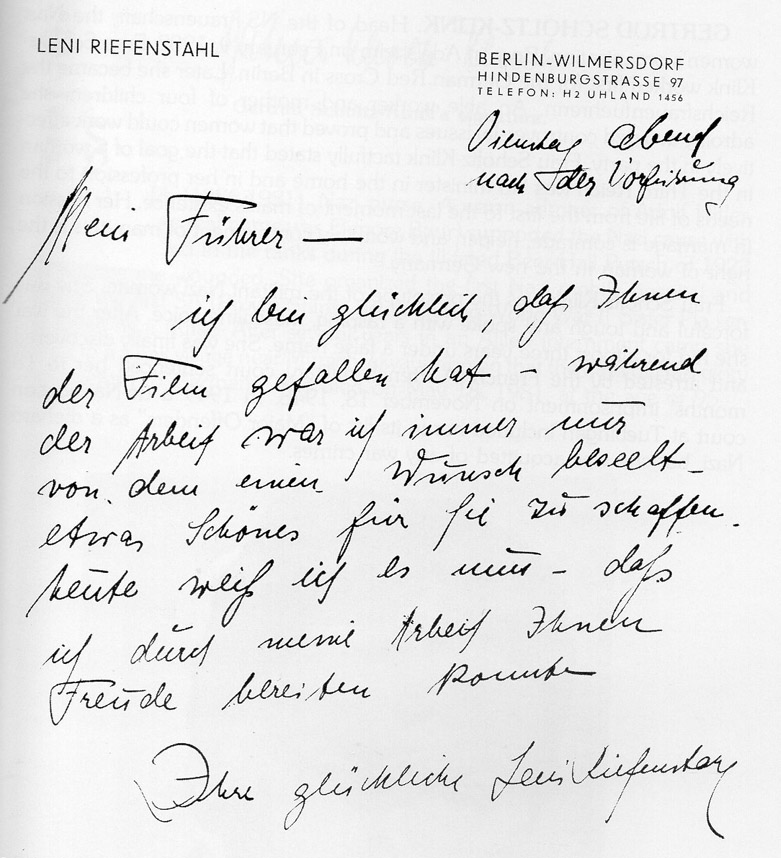 LENI RIEFENSTAHL
BERLIN-WILMERSDORF
HINDENBURGSTRASSE 97
TELEFON: H2 UHLAND 1456
Dienstag abend
nach der Vorführung
Mein Führer —
ich bin glücklich, daß Ihnen
der Film gefallen hat – während
der Arbeit war ich immer nur
von dem einen Wunsch beseelt –
etwas Schönes für Sie zu schaffen.
heute weiß ich es nun – daß
ich durch meine Arbeit Ihnen
Freude bereiten konnte
Ihre glückliche Leni Riefenstahl